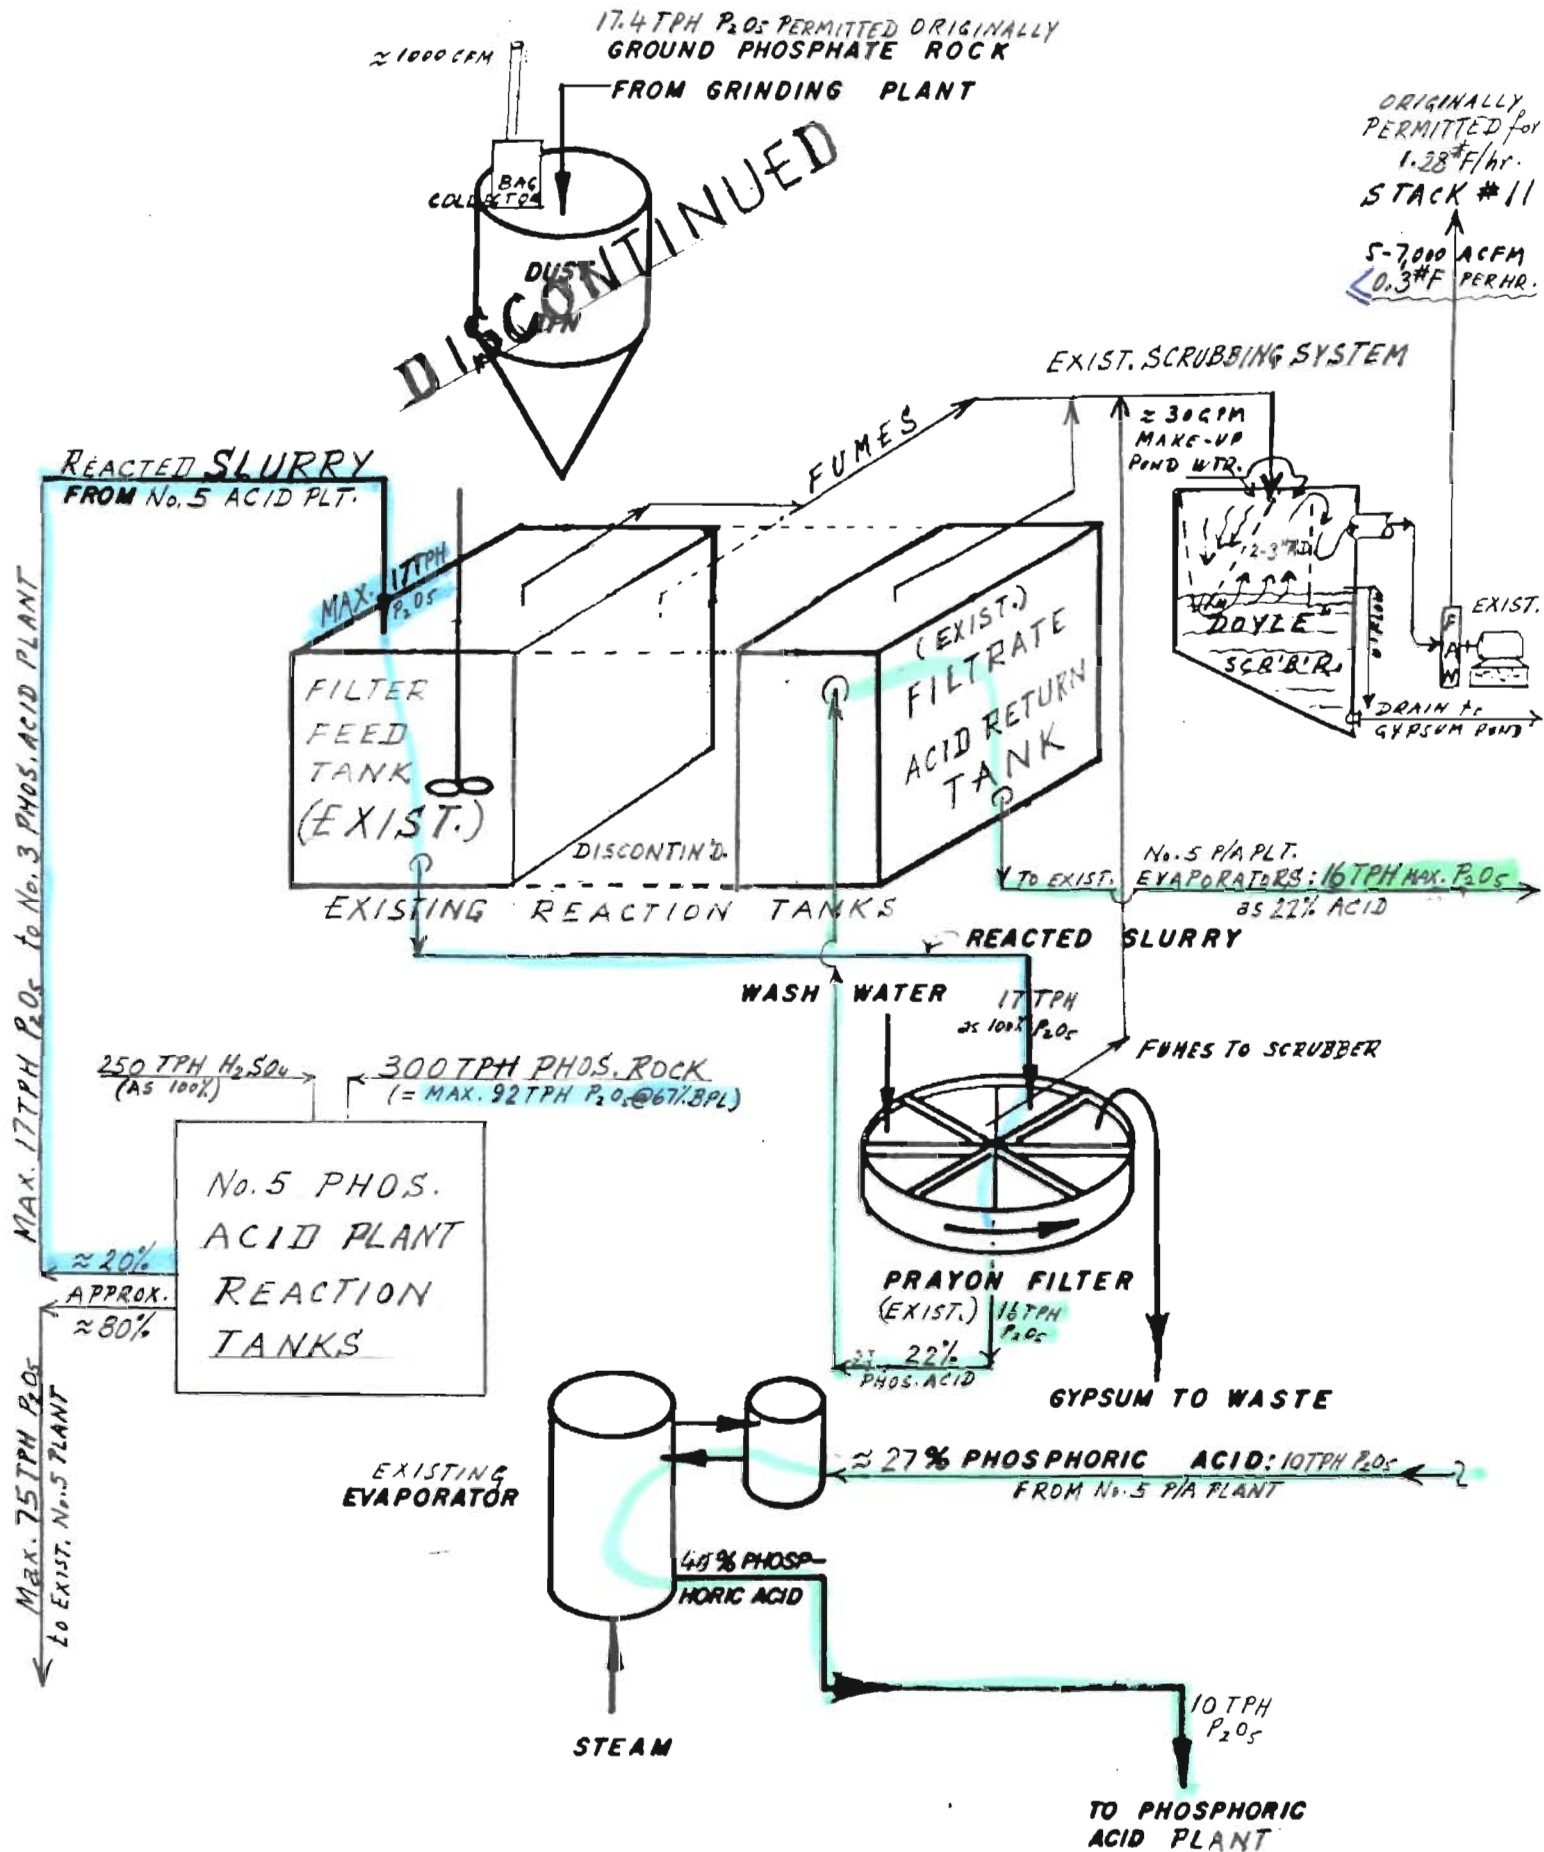 17.4 TPH P₂O₅ PERMITTED ORIGINALLY
GROUND PHOSPHATE ROCK
FROM GRINDING PLANT
≈ 1000 CFM
BAG
DUST
DISCONTINUED
ORIGINALLY
PERMITTED for
1.28 #F/hr.
STACK #11
5-7,000 ACFM
<0.3 #F PER HR.
EXIST. SCRUBBING SYSTEM
≈ 30 GPM
MAKE-UP
POND WTR.
FUMES
REACTED SLURRY
FROM No. 5 ACID PLT.
MAX. 17 TPH
P₂O₅
DOYLE
SCRB'R.
EXIST.
FAN
DRAIN to
GYPSUM POND
FILTER
FEED
TANK
(EXIST.)
DISCONTIN'D.
(EXIST.)
FILTRATE
ACID RETURN
TANK
EXISTING REACTION TANKS
No. 5 P/A PLT.
TO EXIST. EVAPORATORS: 16 TPH MAX. P₂O₅
as 22% ACID
REACTED SLURRY
WASH WATER
17 TPH
as 100% P₂O₅
FUMES TO SCRUBBER
MAX. 17 TPH P₂O₅ to No. 3 PHOS. ACID PLANT
250 TPH H₂SO₄
(AS 100%)
300 TPH PHOS. ROCK
(= MAX. 92 TPH P₂O₅ @ 67% BPL)
No. 5 PHOS.
ACID PLANT
REACTION
TANKS
≈ 20%
APPROX.
≈ 80%
MAX. 75 TPH P₂O₅
to EXIST. No. 5 PLANT
PRAYON FILTER
(EXIST.)
16 TPH
P₂O₅
22%
PHOS. ACID
GYPSUM TO WASTE
EXISTING
EVAPORATOR
≈ 27% PHOSPHORIC ACID: 10 TPH P₂O₅
FROM No. 5 P/A PLANT
% PHOSP-
HORIC ACID
STEAM
10 TPH
P₂O₅
TO PHOSPHORIC
ACID PLANT